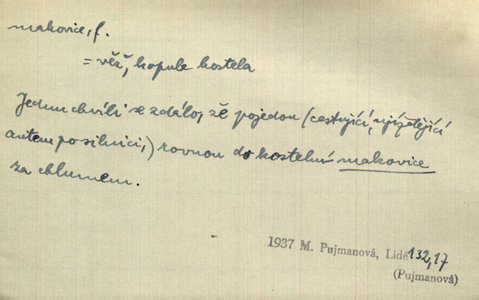 makovice, f.
= věž, kopule kostela
Jednu chvíli se zdálo, že pojedou (cestující, vyjíždějící
autem po silnici,) rovnou do kostelní makovice
za chlumem.
1937 M. Pujmanová, Lidé 132,17
(Pujmanová)